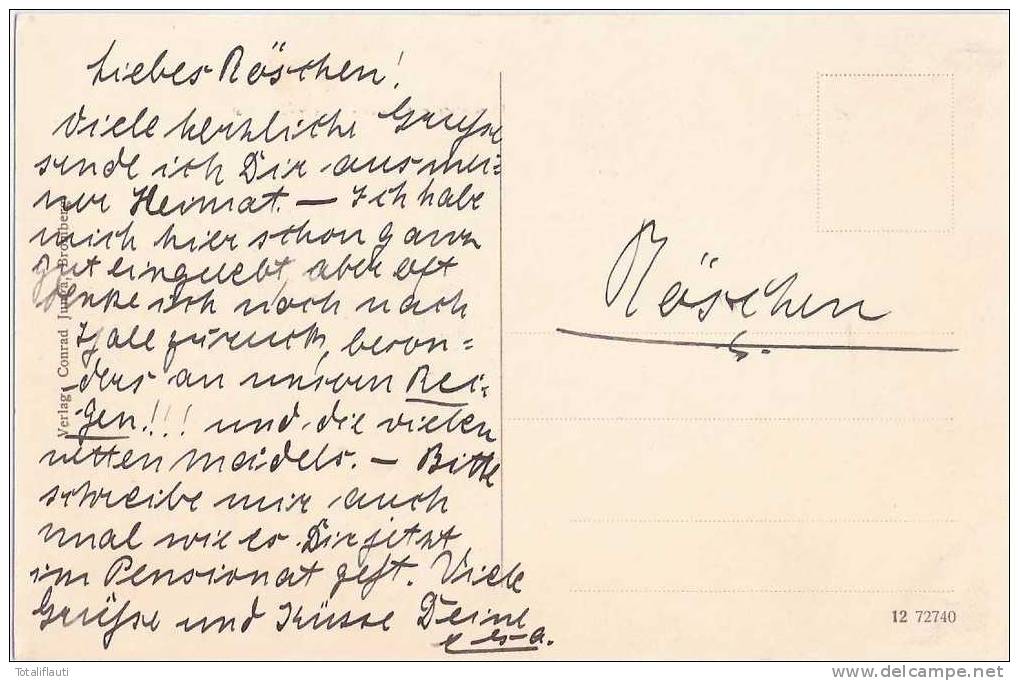 Liebes Röschen!
Viele herzliche Grüße
sende ich Dir aus mei-
ner Heimat. – Ich habe
mich hier schon ganz
gut eingelebt, aber oft
denke ich noch nach
zurück, beson=
ders an unsern Rei-
gen!!! und die vielen
netten Maidels. – Bitte
schreibe mir auch
mal wie es Dir jetzt
im Pensionat geht. Viele
Grüße und Küsse Deine
Röschen
Verlag: Conrad Junga, Bromberg
12 72740
Totaliflauti
http://www.delcampe.net